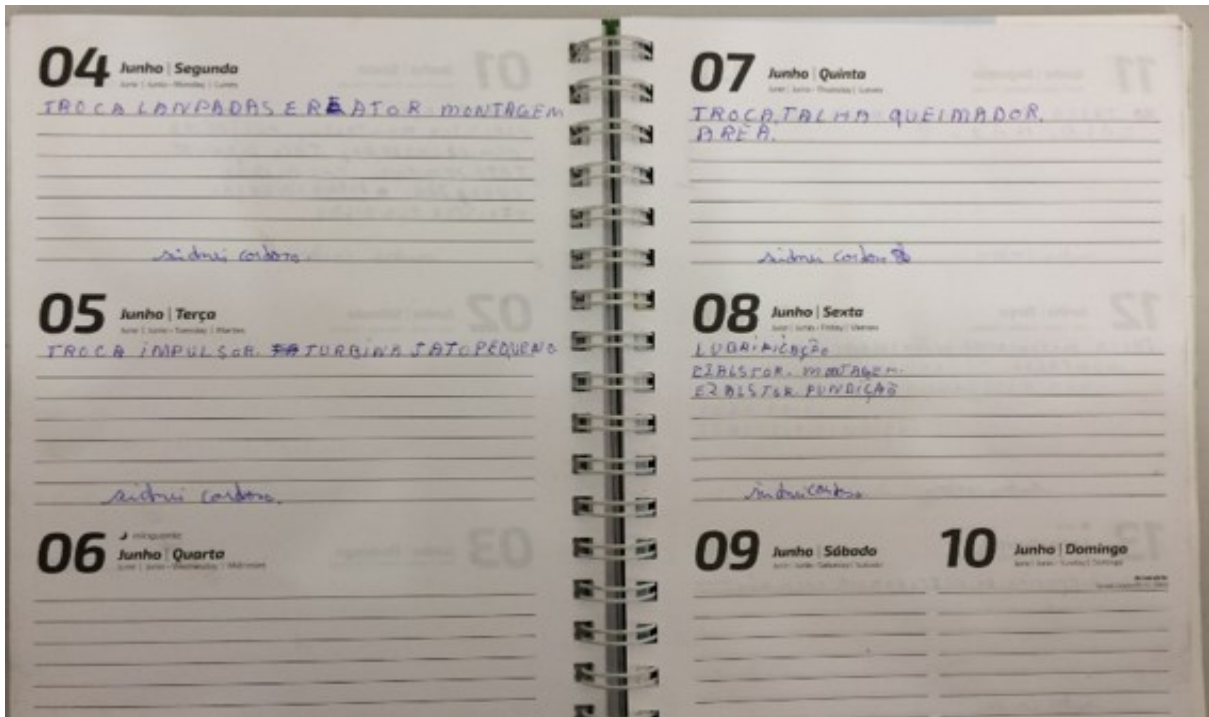 04 Junho | Segunda
June | Junio - Monday | Lunes
TROCA LANPADAS E REATOR MONTAGEM
sidnei cardoso.
05 Junho | Terça
June | Junio - Tuesday | Martes
TROCA IMPULSOR. TURBINA JATO PEQUENO
sidnei cardoso.
06 minguante
Junho | Quarta
June | Junio - Wednesday | Miércoles
07 Junho | Quinta
June | Junio - Thursday | Jueves
TROCA TALHA QUEIMADOR.
AREA.
sidnei cardoso
08 Junho | Sexta
June | Junio - Friday | Viernes
LUBRIFICAÇÃO
MONTAGEM.
FUNDIÇÃO
sidnei cardoso
09 Junho | Sábado
June | Junio - Saturday | Sábado
10 Junho | Domingo
June | Junio - Sunday | Domingo